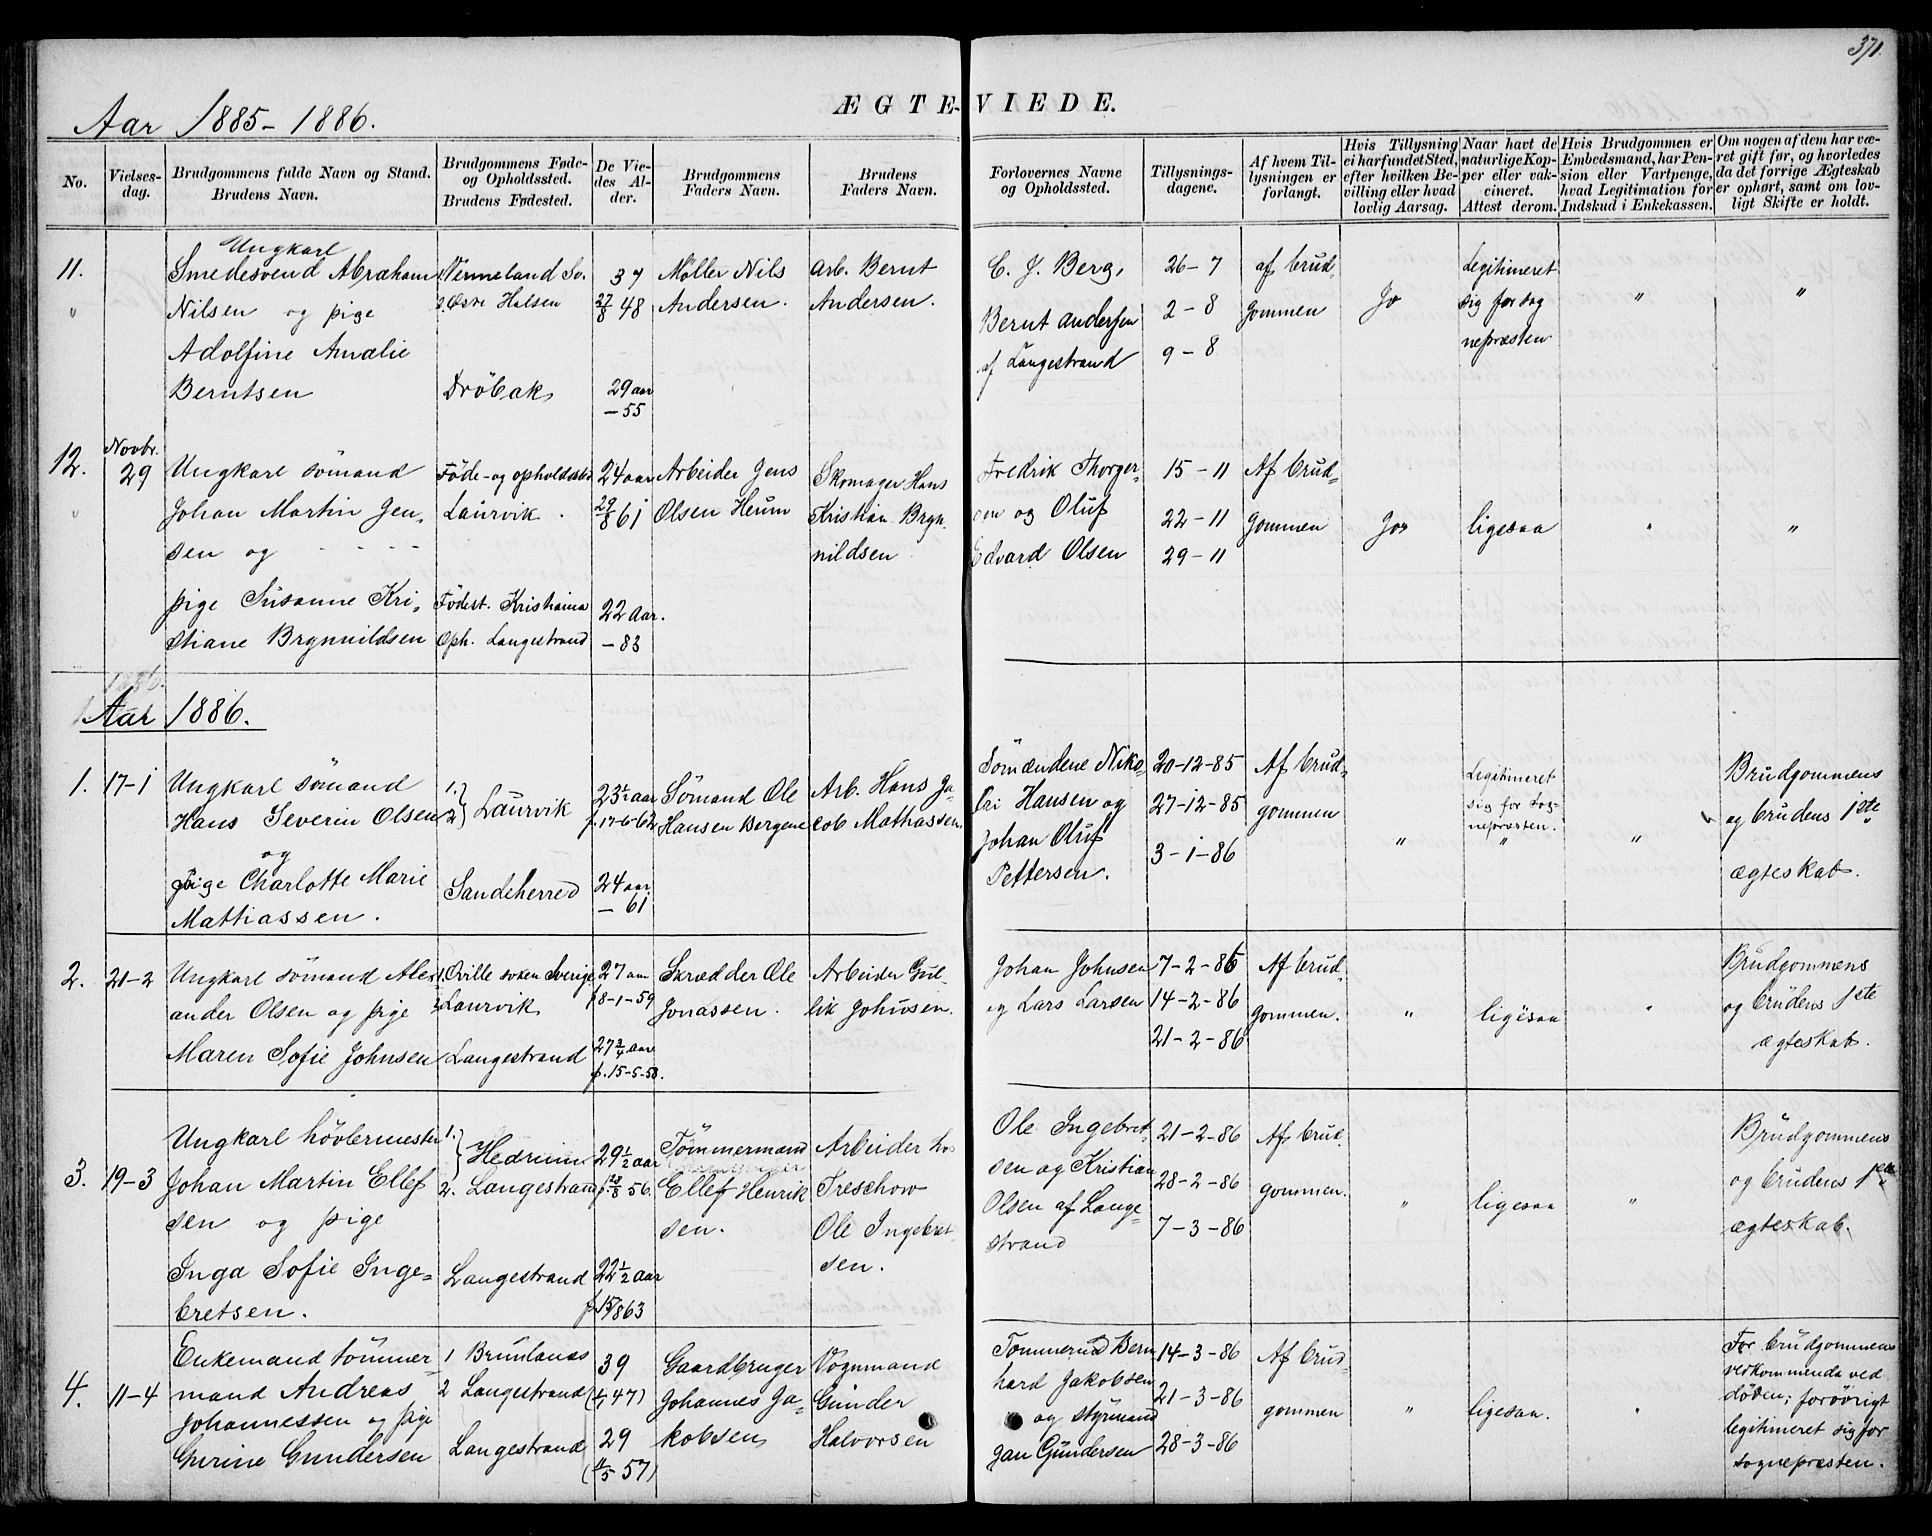 371.
Aar 1885-1886.
ÆGTEVIEDE.
No.
Vielses-
dag.
Brudgommens fulde Navn og Stand.
Brudens Navn.
Brudgommens Føde-
og Opholdssted.
Brudens Fødested.
De Vie-
des Al-
der.
Brudgommens
Faders Navn.
Brudens
Faders Navn.
Forlovernes Navne
og Opholdssted.
Tillysnings-
dagene.
Af hvem Til-
lysningen er
forlangt.
Hvis Tillysning
ei har fundet Sted,
efter hvilken Be-
villing eller hvad
lovlig Aarsag.
Naar havt de
naturlige Kop-
per eller vak-
cineret.
Attest derom.
Hvis Brudgommen er
Embedsmand, har Pen-
sion eller Vartpenge,
hvad Legitimation for
Indskud i Enkekassen.
Om nogen af dem har væ-
ret gift før, og hvorledes
da det forrige Ægteskab
er ophørt, samt om lov-
ligt Skifte er holdt.
11.
"
Ungkarl
Smedesvend Abraham
Nilsen og pige
Adolfine Amalie
Berntsen
Vermeland Sv.
2. Østre Halsen
Dröbak
37
27/8 48
29 aar
- 55
Møller Nils
Andersen.
Arb. Bernt
Andersen.
C. J. Berg,
Bernt Andersen
af Langestrand
26-7
2-8
9-8
af brud-
gommen
Jo
Legitimeret
sig for sog
nepræsten.
"
"
12.
"
Novbr.
29
Ungkarl sömand
Johan Martin Jen-
sen og - - - -
pige Susanne Kri-
stiane Brynnildsen
Föde- og opholdssted
Laurvik.
Födest. Kristiania
Oph. Langestrand
24 aar
29/8 61
22 aar.
- 83
Arbeider Jens
Olsen Heum
Skomager Hans
Kristian Bryn-
nildsen.
Fredrik Thorger-
sen og Oluf
Edvard Olsen
15-11
22-11
29-11
Af brud-
gommen
Jo
ligesaa
"
"
Aar 1886.
1.
17-1
Ungkarl sömand
Hans Severin Olsen
og
pige Charlotte Marie
Mattiassen.
1.
2 } Laurvik
Sandeherred
23½ aar
f. 17-6-62
24 aar.
- 61
Sömand Ole
Hansen Bergene
Arb. Hans Ja-
cob Mathiassen.
Sömændene Niko-
lai Hansen og
Johan Oluf
Pettersen.
20-12-85
27-12-85
3-1-86
Af brud-
gommen
"
Legitimeret
sig for Sog-
nepræsten.
"
"
Brudgommens
og brudens 1ste
ægteskab.
2.
21-2
Ungkarl sömand Alex
ander Olsen og pige
Maren Sofie Johnsen
1. Qville soken Sverige
2. Laurvik
Langestrand
27 aar
f 8-1-59
27¾ aar
f. 15-5-58.
Skrædder Ole
Jonassen.
Arbeider Gul-
lik Johnsen.
Johan Johnsen
og Lars Larsen
7-2-86
14-2-86
21-2-86
Af brud-
gommen.
"
ligesaa
"
Brudgommens
og brudens 1ste
ægteskab.
3.
19-3
Ungkarl hövlermester
Johan Martin Ellef
sen og pige
Inga Sofie Inge-
bretsen.
1.
} Hedrum
2. Langestrand
Langestrand
29½ aar
/8 56.
22½ aar
f. 15/ 863
Tömmermand
Ellef Henrik
sen.
Arbeider hos
Treschow
Ole Ingebret-
sen.
Ole Ingebret-
sen og Kristian
Olsen af Lange-
strand
21-2-86
28-2-86
7-3-86
Af brud-
gommen.
"
ligesaa
"
Brudgommens
og brudens 1ste
ægteskab.
4.
11-4
Enkemand tömmer
mand Andreas
Johannessen og pige
Gurine Gundersen
1 Brunlanæs
2 Langestrand
Langestrand
39
( 47)
29
( /5 57)
Gaardbruger
Johannes Ja-
kobsen
Vognmand
Gunder
Halvorsen
Tommermd Bern
hard Jakobsen
og styrmand
Jan Gundersen
14-3-86
21-3-86
28-3-86
Af brud-
gommen
"
ligesaa.
"
For brudgommens
vedkommende ved
döden; forövrigt
legitimeret sig for
sognepræsten.